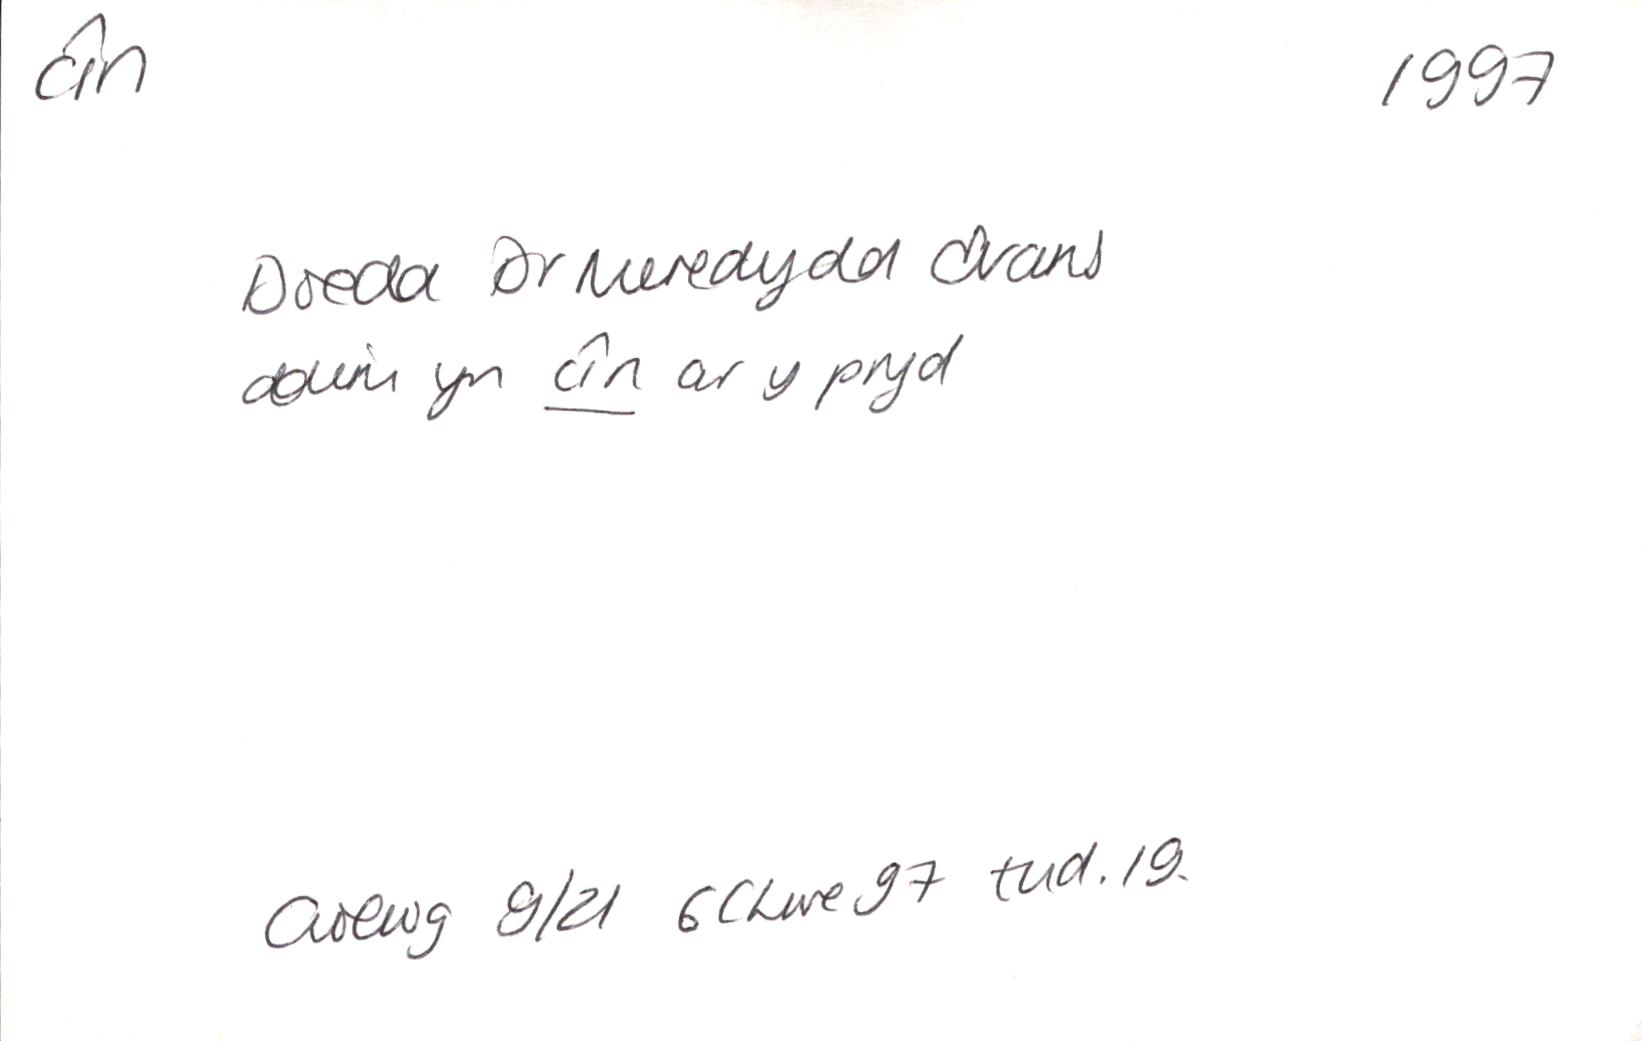 cîn 1997
Doedd Dr Meredydd Evans
ddim yn cîn ar y pryd
Golwg 9/21 6 Chwe 97 tud. 19.